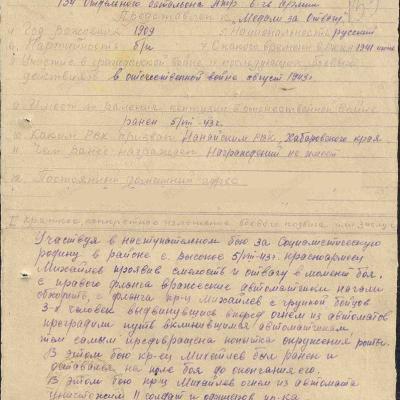 154 Отдельного батальона 6-го Армии
Представлен к "Медали за Отвагу"
Год рождения 1909 5. Национальность русский
Партийность б/п 7. С какого времени в РККА 1941
Участие в гражданской войне и последующих боевых
действиях в отечественной война август 1943г.
Имеет ли ранения и контузии в отечественной войне
ранен 5/VIII-43г.
10. Каким РВК призван Нанайским РВК, Хабаровского края
11. Чем ранее награжден Награждений не имеет
12. Постоянный домашний адрес
I Краткое конкретное изложение боевого подвига или заслуг
Участвуя в наступательном бою за Социалистическую
родину в районе с. Высокое 5/VIII-43г. красноармеец
Михайлев проявив смелость и отвагу в момент боя.
с правого фланга вражеские автоматчики начали
обходить, с фланга кр-ц Михайлев с группой бойцов
3-х человек выдвинувшись вперед огнем из автоматов
преградили путь вклинившимся автоматчикам,
тем самым предотвращена попытка окружения роты.
В этом бою кр-ец Михайлев был ранен и
оставался на поле боя до окончания его.
В этом бою кр-ц Михайлев огнем из автомата
уничтожил 11 солдат и офицеров пр-ка